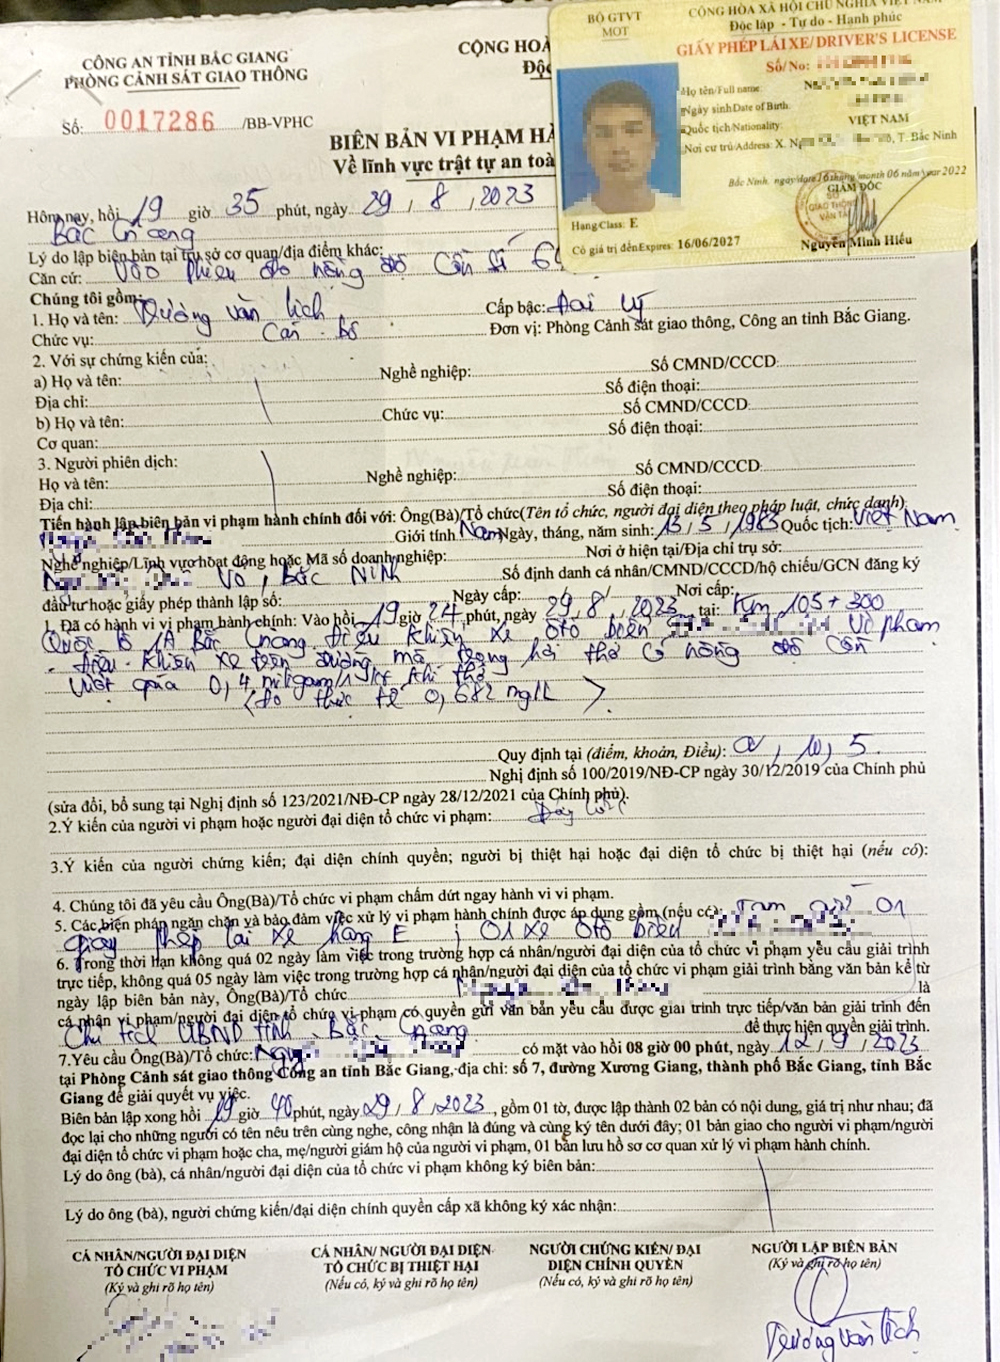 CÔNG AN TỈNH BẮC GIANG
PHÒNG CẢNH SÁT GIAO THÔNG
Số: 0017286 /BB-VPHC
CỘNG HOÀ
Độc
BIÊN BẢN VI PHẠM HÀ
Về lĩnh vực trật tự an toà
BỘ GTVT
MOT
CỘNG HÒA XÃ HỘI CHỦ NGHĨA VIỆT NAM
Độc lập - Tự do - Hạnh phúc
GIẤY PHÉP LÁI XE/DRIVER'S LICENSE
Số/No:
Họ tên/Full name:
Ngày sinh/Date of Birth:
Quốc tịch/Nationality: VIỆT NAM
Nơi cư trú/Address: X. T. Bắc Ninh
Bắc Ninh, ngày/date 16 tháng/month 06 năm/year 2022
GIÁM ĐỐC
SỞ
GIAO THÔNG
VẬN TẢI
Hạng/Class: E
Có giá trị đến/Expires: 16/06/2027
Nguyễn Minh Hiếu
Hôm nay, hồi 19 giờ 35 phút, ngày 29, 8, 2023
Bắc Giang
Lý do lập biên bản tại trụ sở cơ quan/địa điểm khác:
Căn cứ: Vào phiếu đo nồng độ cồn số
Chúng tôi gồm:
1. Họ và tên: Dương Văn Lịch Cấp bậc: Đại uý
Chức vụ: Cán bộ Đơn vị: Phòng Cảnh sát giao thông, Công an tỉnh Bắc Giang.
2. Với sự chứng kiến của:
a) Họ và tên: Nghề nghiệp: Số CMND/CCCD:
Địa chỉ: Số điện thoại:
b) Họ và tên: Chức vụ: Số CMND/CCCD:
Cơ quan: Số điện thoại:
3. Người phiên dịch:
Họ và tên: Nghề nghiệp: Số CMND/CCCD:
Địa chỉ: Số điện thoại:
Tiến hành lập biên bản vi phạm hành chính đối với: Ông(Bà)/Tổ chức(Tên tổ chức, người đại diện theo pháp luật, chức danh):
Giới tính Nam Ngày, tháng, năm sinh: 13, 5, 1983 Quốc tịch: Việt Nam
Nghề nghiệp/Lĩnh vực hoạt động hoặc Mã số doanh nghiệp: Nơi ở hiện tại/Địa chỉ trụ sở:
Võ, Bắc Ninh Số định danh cá nhân/CMND/CCCD/hộ chiếu/GCN đăng ký
đầu tư hoặc giấy phép thành lập số: Ngày cấp: / / Nơi cấp:
1. Đã có hành vi vi phạm hành chính: Vào hồi 19 giờ 24 phút, ngày 29, 8, 2023 tại: Km 105+300
Quốc lộ 1A Bắc Giang điều khiển xe ôtô biển Vi phạm
- Điều khiển xe trên đường mà trong hơi thở có nồng độ cồn
vượt quá 0,4 miligam/1 lít khí thở
(đo thực tế 0,682 mg/l)
Quy định tại (điểm, khoản, Điều): a, 10, 5.
Nghị định số 100/2019/NĐ-CP ngày 30/12/2019 của Chính phủ
(sửa đổi, bổ sung tại Nghị định số 123/2021/NĐ-CP ngày 28/12/2021 của Chính phủ).
2.Ý kiến của người vi phạm hoặc người đại diện tổ chức vi phạm:
3.Ý kiến của người chứng kiến; đại diện chính quyền; người bị thiệt hại hoặc đại diện tổ chức bị thiệt hại (nếu có):
4. Chúng tôi đã yêu cầu Ông(Bà)/Tổ chức vi phạm chấm dứt ngay hành vi vi phạm.
5. Các biện pháp ngăn chặn và bảo đảm việc xử lý vi phạm hành chính được áp dụng gồm (nếu có): Tạm giữ 01
giấy phép lái xe hạng E ; 01 xe ôtô biển
6. Trong thời hạn không quá 02 ngày làm việc trong trường hợp cá nhân/người đại diện của tổ chức vi phạm yêu cầu giải trình
trực tiếp, không quá 05 ngày làm việc trong trường hợp cá nhân/người đại diện của tổ chức vi phạm giải trình bằng văn bản kể từ
ngày lập biên bản này, Ông(Bà)/Tổ chức là
cá nhân vi phạm/người đại diện tổ chức vi phạm có quyền gửi văn bản yêu cầu được giải trình trực tiếp/văn bản giải trình đến
Chủ tịch UBND tỉnh Bắc Giang để thực hiện quyền giải trình.
7.Yêu cầu Ông(Bà)/Tổ chức: có mặt vào hồi 08 giờ 00 phút, ngày 12, 9, 2023
tại Phòng Cảnh sát giao thông Công an tỉnh Bắc Giang, địa chỉ: số 7, đường Xương Giang, thành phố Bắc Giang, tỉnh Bắc
Giang để giải quyết vụ việc.
Biên bản lập xong hồi 19 giờ 40 phút, ngày 29, 8, 2023, gồm 01 tờ, được lập thành 02 bản có nội dung, giá trị như nhau; đã
đọc lại cho những người có tên nêu trên cùng nghe, công nhận là đúng và cùng ký tên dưới đây; 01 bản giao cho người vi phạm/người
đại diện tổ chức vi phạm hoặc cha, mẹ/người giám hộ của người vi phạm, 01 bản lưu hồ sơ cơ quan xử lý vi phạm hành chính.
Lý do ông (bà), cá nhân/người đại diện của tổ chức vi phạm không ký biên bản:
Lý do ông (bà), người chứng kiến/đại diện chính quyền cấp xã không ký xác nhận:
CÁ NHÂN/NGƯỜI ĐẠI DIỆN
TỔ CHỨC VI PHẠM
(Ký và ghi rõ họ tên)
CÁ NHÂN/ NGƯỜI ĐẠI DIỆN
TỔ CHỨC BỊ THIỆT HẠI
(Nếu có, ký và ghi rõ họ tên)
NGƯỜI CHỨNG KIẾN/ ĐẠI
DIỆN CHÍNH QUYỀN
(Nếu có, ký và ghi rõ họ tên)
NGƯỜI LẬP BIÊN BẢN
(Ký và ghi rõ họ tên)
Dương Văn Lịch